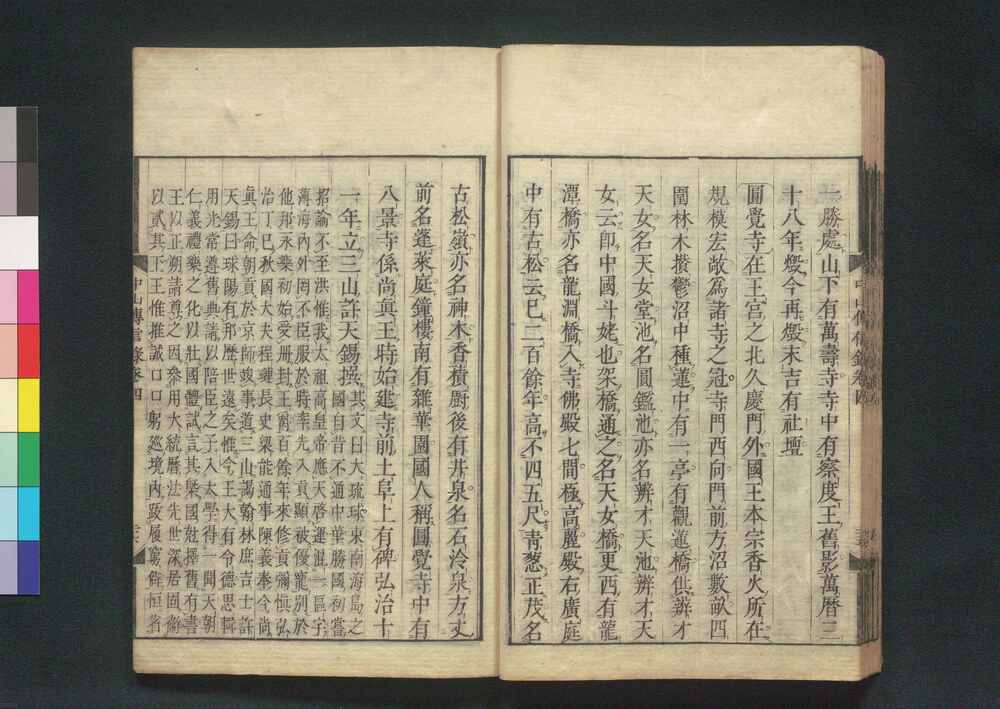 一勝處山下有萬壽寺寺中有察度王舊影萬曆三
十八年燬今再燬末吉有社壇
圓覺寺在王宮之北久慶門外國王本宗香火所在
規模宏敞為諸寺之冠寺門西向門前方沼數畝四
圍林木攢鬱沼中種蓮中有一亭有觀蓮橋供辨才
天女名天女堂池名圓鑑池亦名辨才天池辨才天
女云卽中國斗姥也架橋通之名天女橋更西有龍
潭橋亦名龍淵橋入寺佛殿七間極高麗殿右廣庭
中有古松云已二百餘年高不四五尺靑葱正茂名
古松嶺亦名神木香積厨後有井泉名石泠泉方丈
前名蓬萊庭鐘樓南有雜華園國人稱圓覺寺中有
八景寺係尚眞王時始建寺前土阜上有碑弘治十
一年立三山許天錫撰其文曰大琉球東南海島之
國自昔不通中華勝國初嘗
招諭不至洪惟我太祖高皇帝應天啓運混一區宇
薄海內外罔不臣服於時率先入貢顯被優寵別於
他邦永樂初始受册封王爵百餘年來修貢彌愼弘
治丁巳秋國大夫程璉長史梁能通事陳義奉今尚
眞王命朝貢於京師竣事道三山謁翰林庶吉士許
天錫曰球陽有邦歷世遠矣惟今王大有令德思輯
用光常遵舊典請以陪臣之子入太學得一聞天朝
仁義禮樂之化以壯國體試言其槩國姓擇舊有書
王以正朔請尊之因叅用大統曆法先世深居固衛
以貳其下王惟推誠口口躬廵境內
中山傳信錄卷四
中山傳信錄卷四